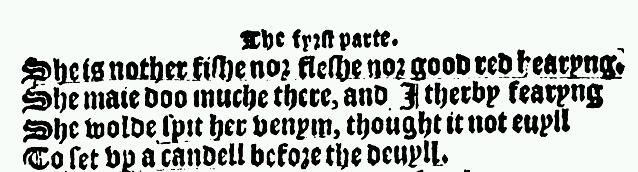 The fyrst parte.
She is nother fishe nor fleshe nor good red hearyng.
She maie doo muche there, and I therby fearyng
She wolde spit her venym, thought it not euyll
To set vp a candell before the deuyll.